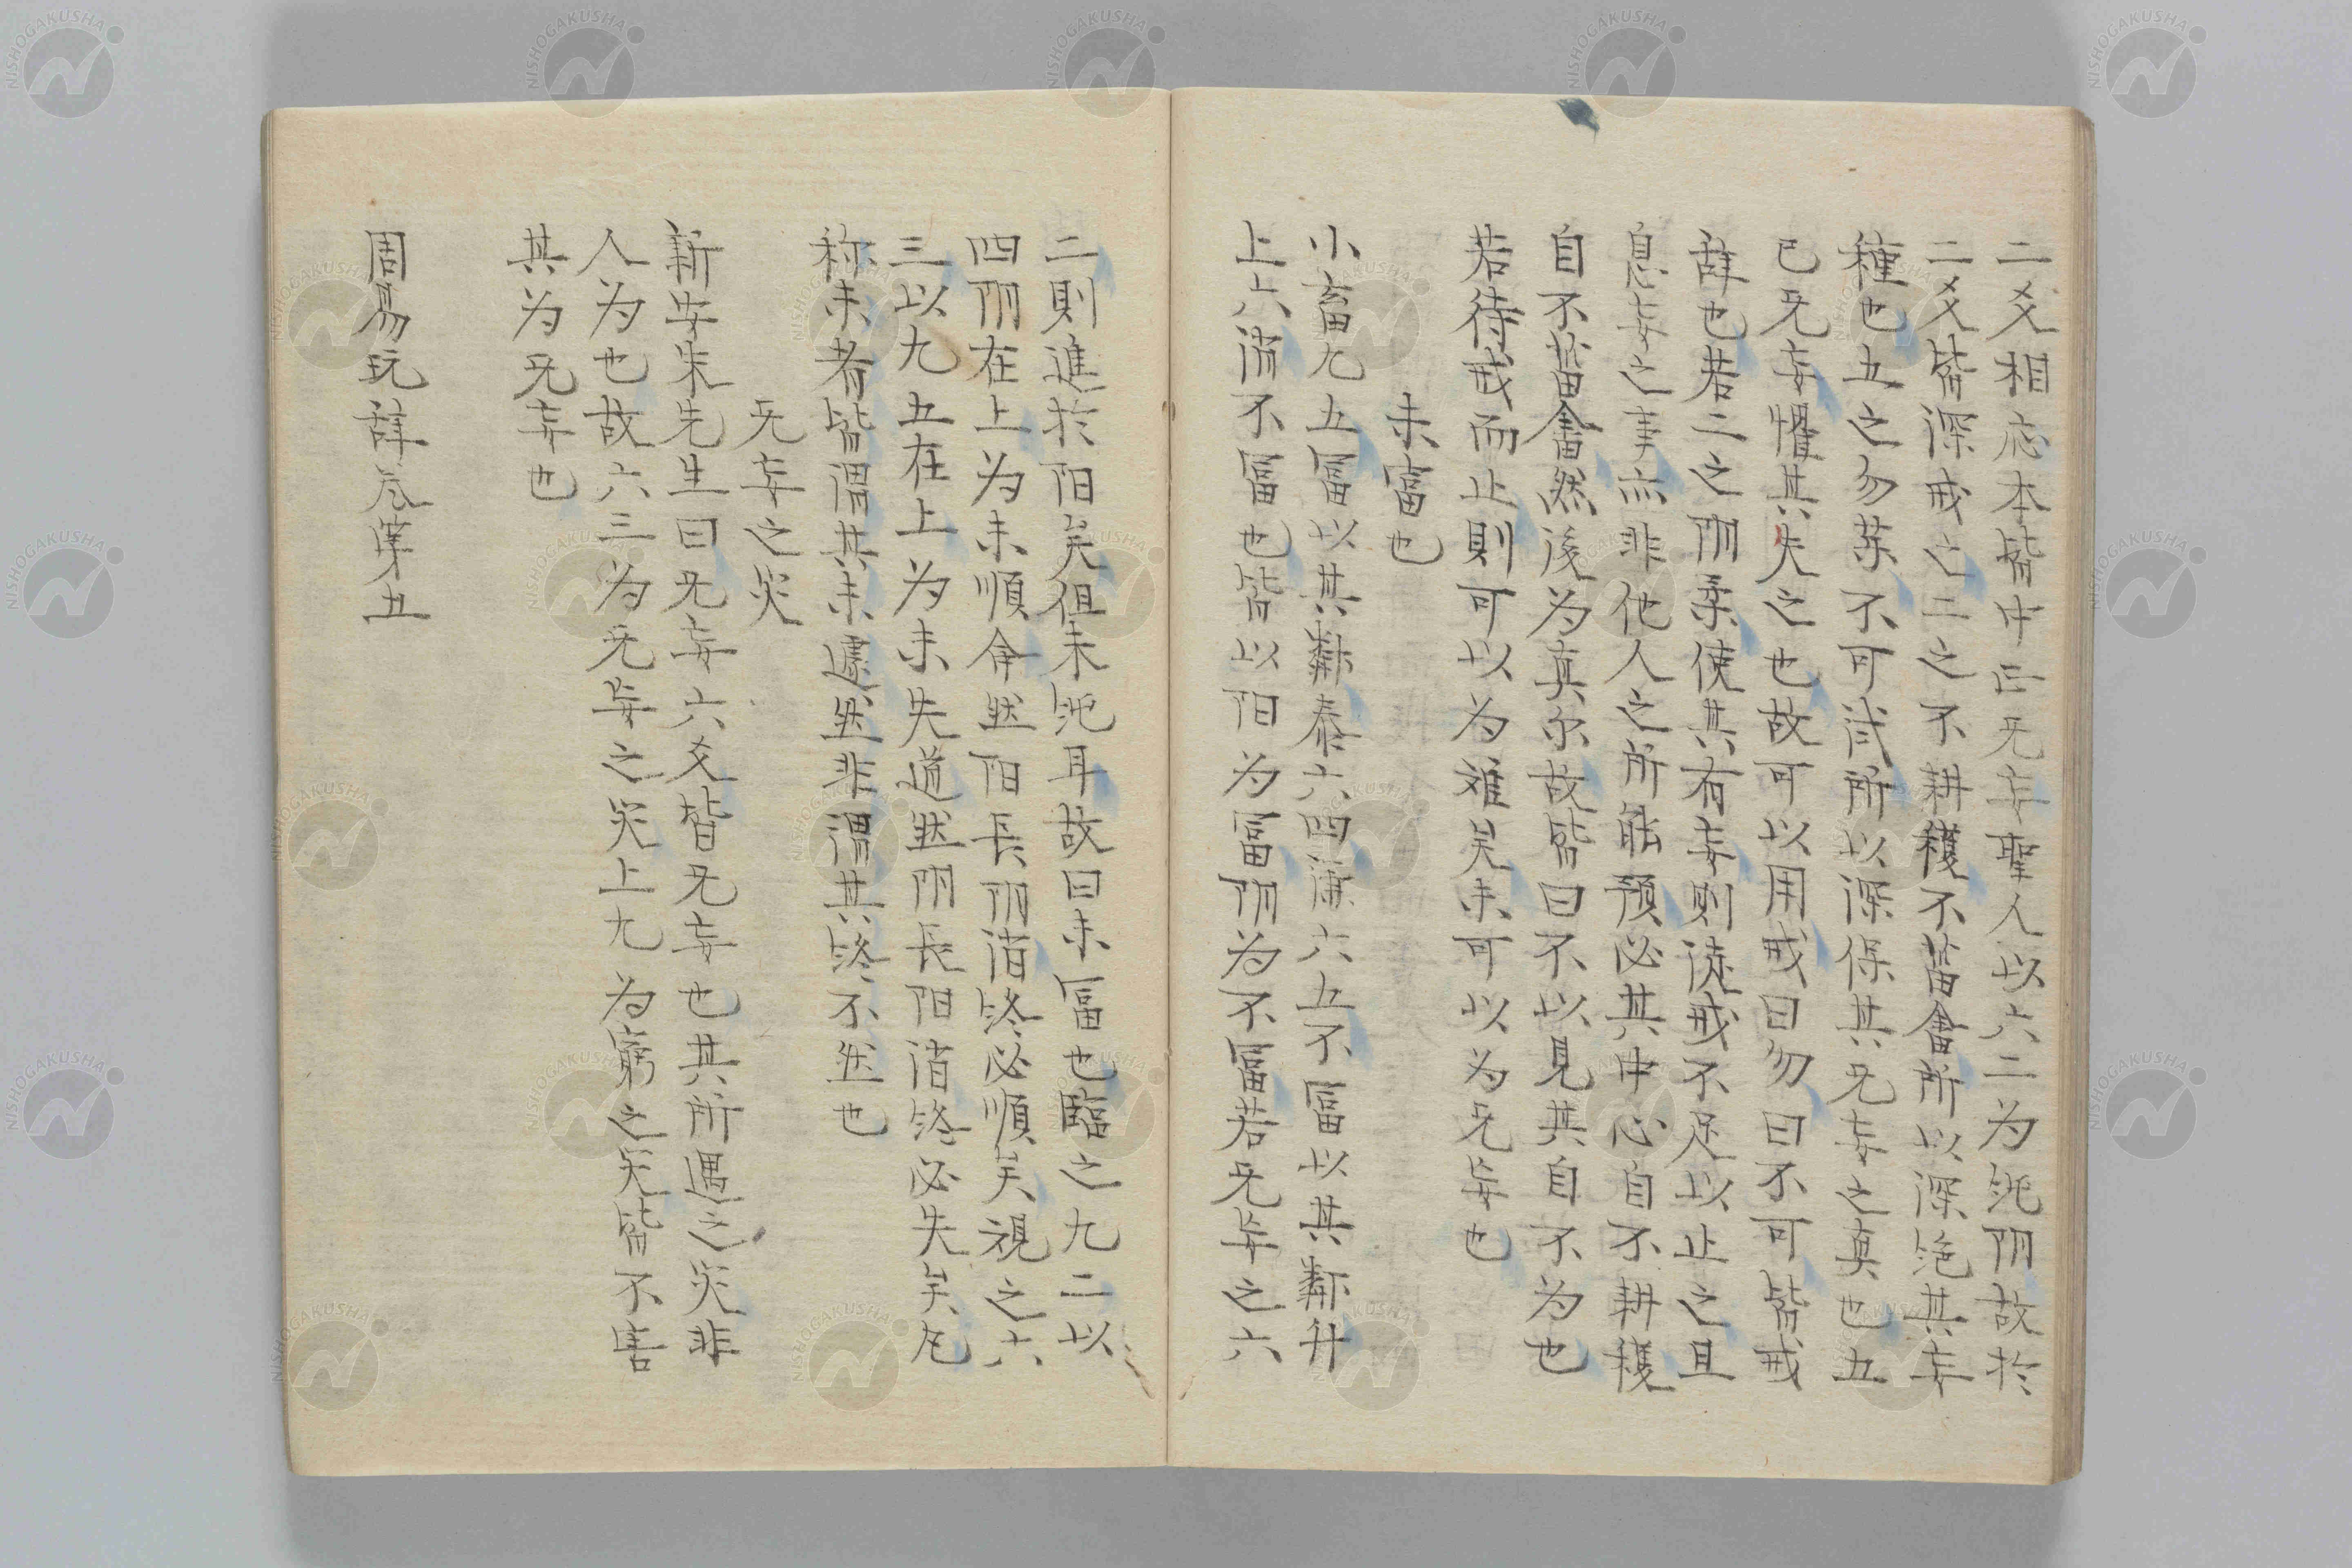 二爻相应本皆中正无妄聖人以六二为純阴故於
二爻皆深戒之二之不耕穫不菑畬所以深絶其妄
種也五之勿藥不可試所以深保其无妄之真也五
已无妄懼其失之也故可以用戒曰勿曰不可皆戒
辞也若二之阴柔使其有妄則徒戒不足以止之且
息妄之事亦非他人之所能預必其中心自不耕穫
自不菑畬然後为真尔故皆曰不以見其自不为也
若待戒而止則可以为难矣未可以为无妄也
未富也
小畜九五富以其鄰泰六四謙六五不富以其鄰升
上六消不富也皆以阳为富阴为不富若无妄之六
二則進於阳矣但未純耳故曰未富也臨之九二以
四阴在上为未順命然阳長阴消終必順矣視之六
三以九五在上为未失道然阴長阳消終必失矣凡
称未者皆謂其未遽然非謂其終不然也
无妄之災
新安朱先生曰无妄六爻皆无妄也其所遇之災非
人为也故六三为无妄之災上九为窮之災皆不害
其为无妄也
周易玩辞卷第五
NISHOGAKUSHA